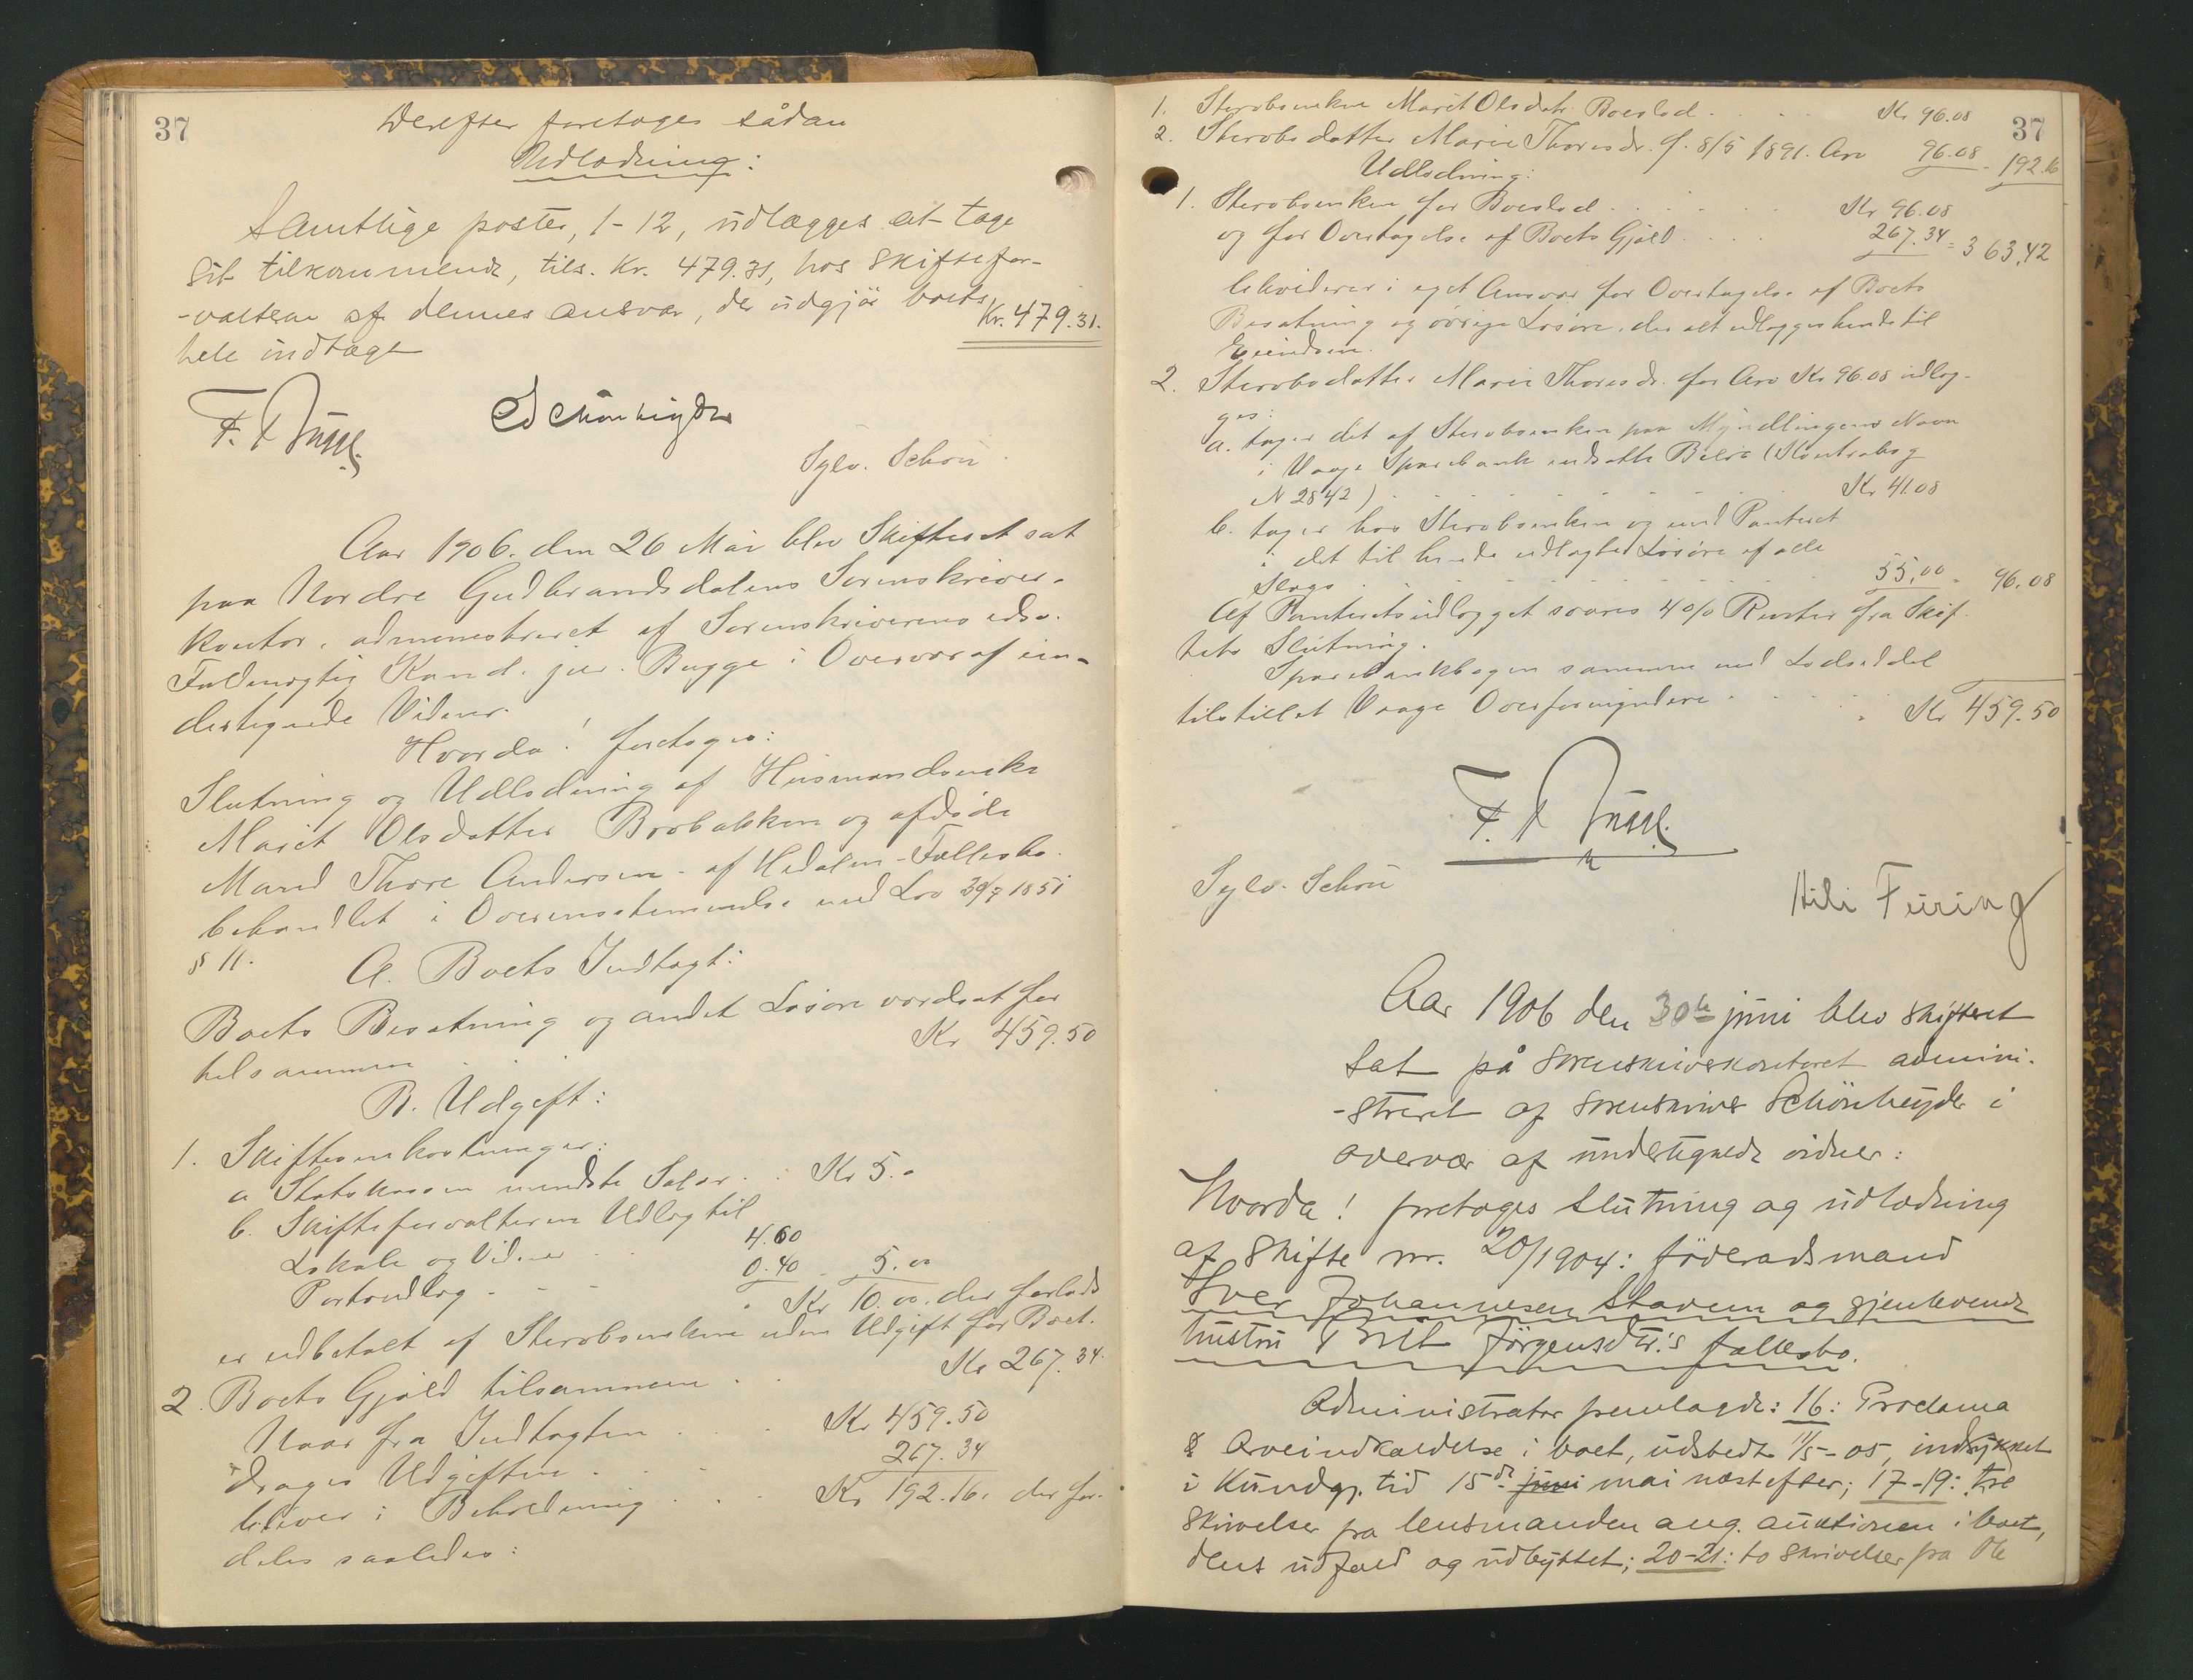 37
Derefter foretoges sådan
Udlodning:
Samtlige poster, 1-12, udlægges at tage
sit tilkommende, tils. Kr. 479.31, hos skiftefor-
-valteren af dennes ansvar, der udgjør boets
hele indtægt Kr. 479.31.
F. Bugge.
Schönheyder
Sylv. Schou
Aar 1906. den 26 Mai blev Skifteret sat
paa Nordre Gudbrandsdalens Sorenskriver-
kontor, administreret af Sorenskriverens eds.
Fuldmægtig Kand. jur. Bugge i Overvær af un-
dertegnede Vidner.
Hvorda! foretoges:
Slutning og Udlodning af Husmandsenke
Marit Olsdatter Brobakken og afdøde
Mand Thore Andersen af Hedalen-Fællesbo
behandlet i Overensstemmelse med Lov 30/7 1851
§ 11.
A. Boets Indtægt:
Boets Besætning og andet Løsøre vurderet for
tilsammen Kr 459.50
B. Udgift:
1. Skifteomkostninger:
a Statskassen mindste Salær . . Kr 5.-
b. Skifteforvalteren Udlæg til
Lokale og Vidner . . 4.60
Portoudlæg - - - 0.40 - 5.00
Kr 10.00. der forlods
er udbetalt af Sterboenken uden Udgift for Boet.
2. Boets Gjæld tilsammen . . Kr 267.34.
Naar fra Indtægten . . . Kr 459.50
drages Udgiften . . . 267.34
bliver i Beholdning . . . Kr 192.16. der for-
deles saaledes:
37
1. Sterboenken Marit Olsdatr. Boeslod . . . . Kr 96.08
2. Sterbodatter Marie Thoresdr. f. 8/5 1891. Arv 96.08 - 192.16
Udlodning:
1. Sterboenken for Boeslod . . . . . . Kr 96.08
og for Overtagelse af Boets Gjæld . . . . 267.34 = 363.42
likviderer i eget Ansvar for Overtagelse af Boets
Besætning og øvrige Løsøre, der alt udlægges hende til
Eiendom.
2. Sterbodatter Marie Thoresdr. for Arv Kr 96.08 udlæg-
ges:
a. tager det af Sterboenken paa Myndlingens Navn
i Vaage Sparebank indsatte Beløb (Kontrabog
N 2842) . . . . . . . . Kr 41.08
b. tager hos Sterboenken og med Panteret
i det til hende udlagte Løsøre af alle
Slags . . . . . . . . . 55.00 - 96.08
Af Panteretsudlægget svares 4 o/o Renter fra Skif-
tets Slutning.
Sparebankbogen sammen med Lodseddel
tilstillet Vaage Overformynderi . . . . . Kr 459.50
F. Bugge.
Sylv. Schou
Hili Furing
Aar 1906 den 30te juni blev skifteret
sat på sorenskriverkontoret admini-
-streret af sorenskriver Schönheyder i
overvær af undertegnede vidner:
Hvorda! foretoges slutning og udlodning
af skifte nr. 20/1904: föderadsmand
Iver Johannesen Stavem og gjenlevende
hustru Brit Jörgensdtr.'s fællesbo.
Administrator fremlagde: 16: Proclama
& Arveindkaldelse i boet, udstedt 11/5-05, indrykket
i Kundgj. tid 15de juni mai næstefter; 17-19: tre
skrivelser fra lensmanden ang. auktionen i boet,
dens udfald og udbyttet; 20-21: to skrivelser fra Ole